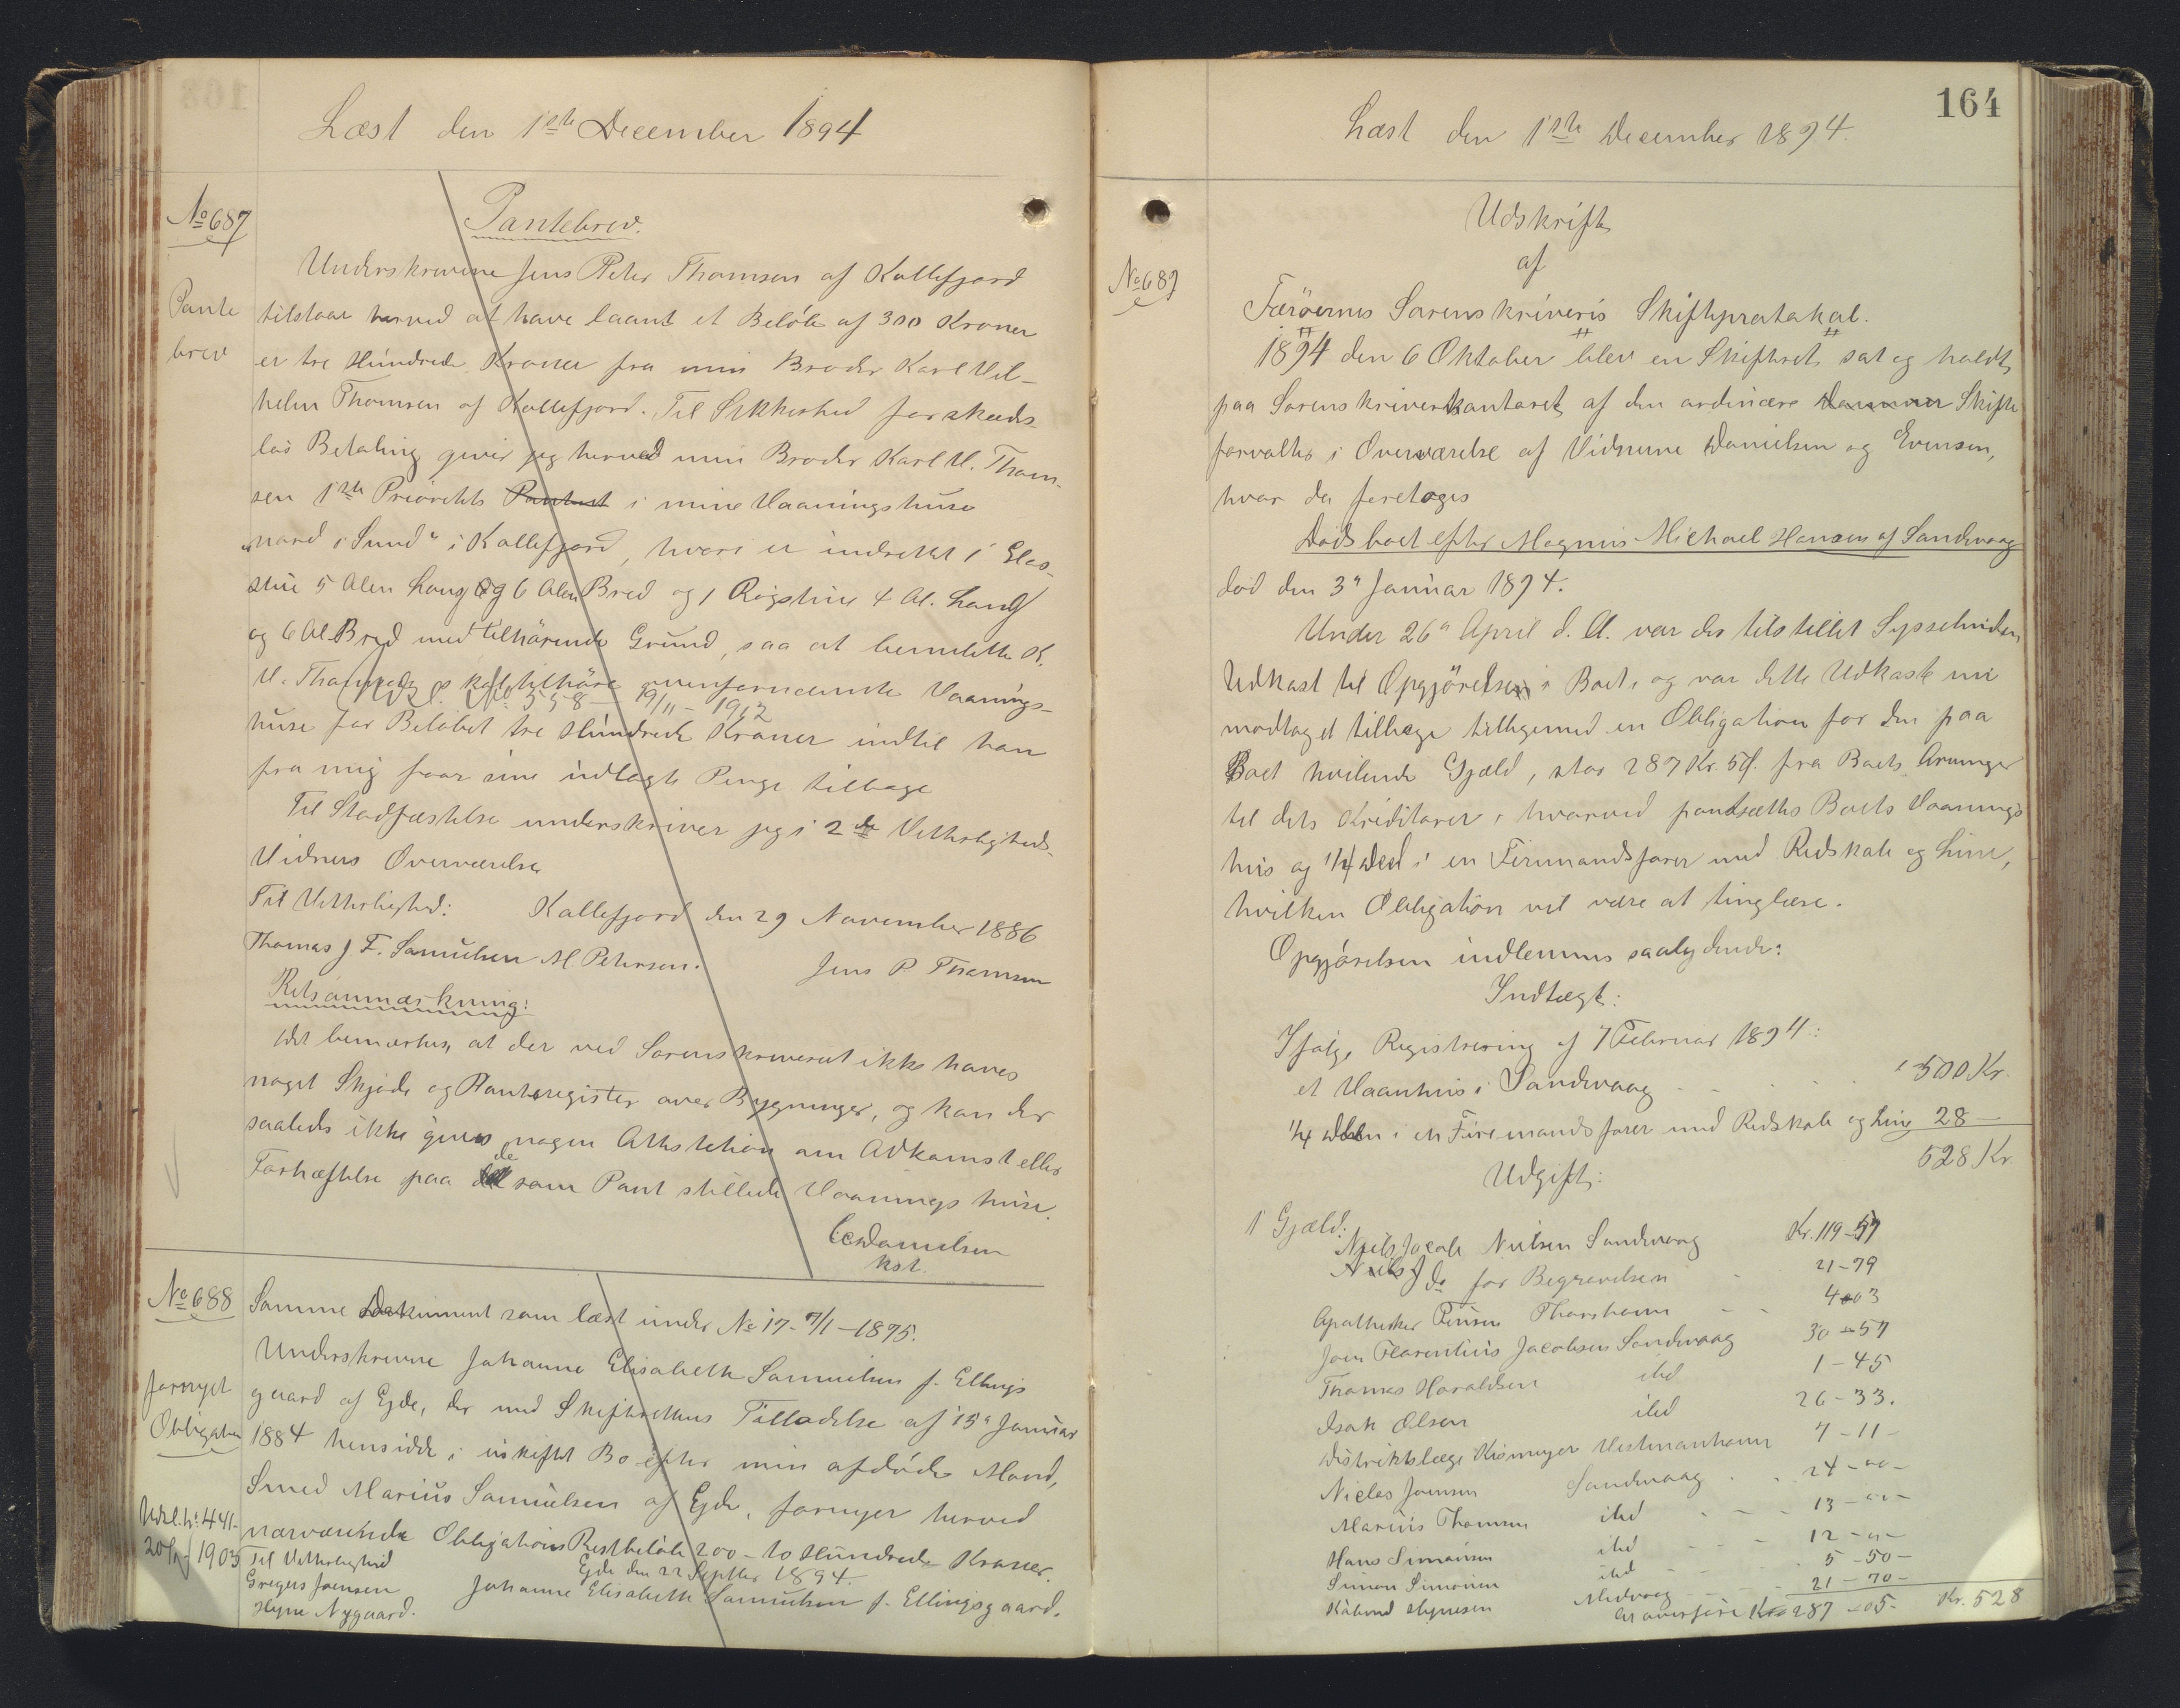 Læst den 1ste December 1894
No 687
Pantebrev.
Pante
brev
Underskrevne Jens Peter Thomsen af Kollefjord
tilstaar herved at have laant et Beløb af 300 Kroner
er tre Hundrede Kroner fra min Broder Karl Vil-
helm Thomsen af Kollefjord. Til Sikkerhed for skades-
løs Betaling giver jeg herved min Broder Karl V. Thom-
sen 1ste Prioritets Panteret i mine Vaaningshuse
"nord i Sund" i Kollefjord, hvori er indrettet 1 Glas-
stue 5 Alen Lang og 6 Alen Bred og 1 Røgstue 4 Al. Lang
og 6 Al. Bred med tilhørende Grund, saa at bemeldte K.
V. Thomsen skal tilhøre ovenfornævnte Vaanings-
558 – 19/11 – 1912
huse for Beløbet tre Hundrede Kroner indtil han
fra mig faar sine indlagte Penge tilbage
Til Stadfæstelse underskriver jeg i 2de Vitterligheds-
Vidners Overværelse
Til Vitterlighed: Kollefjord den 29 November 1886
Thomas J F. Samuelsen M Petersen. Jens P Thomsen
Retsanmærkning:
Det bemærkes, at der ved Sorenskriveriet ikke haves
noget Skjøde og Panteregister over Bygninger, og kan der
saaledes ikke gives nogen Attestation om Adkomst eller
Forhæftelse paa de som Pant stillede Vaaningshuse.
Danielsen
kst.
No 688
Samme Dokument som læst under No 17 – 7/1 – 1875.
fornyet
Obligation
Underskrevne Johanne Elisabeth Samuelsen f. Ellings
gaard af Ejde, der med Skifterettens Tilladelse af 15de Januar
1884 hensidder i uskiftet Bo efter min afdøde Mand,
Smed Marius Samuelsen af Ejde, fornyer herved
Udsl. No. 441-
1903
nærværende Obligations Restbeløb 200 – to Hundrede Kroner.
Til Vitterlighed Ejde den 22 Septbr 1894.
Gregers Joensen Johanne Elisabeth Samuelsen f. Ellingsgaard.
Nygaard.
164
Læst den 1ste December 1894.
Udskrift
af
No 689
Færøernes Sorenskriveris Skifteprotokol.
1894 den 6 Oktober blev en Skifteret sat og holdt
paa Sorenskriverkontoret af den ordinære Dommer Skifte
forvalter i Overværelse af Vidnerne Danielsen og Evensen,
hvor da foretoges
Dødsboet efter Magnus Michael Hansen af Sandevaag
død den 3die Januar 1894.
Under 26de April d. A. var der tilstillet Sysselmanden
Udkast til Opgjørelsen i Boet, og var dette Udkast nu
modtaget tilbage tilligemed en Obligation for den paa
Boet hvilende Gjæld, stor 287 Kr. 5 Ø. fra Boets Arvinger
til dets Kreditorer, hvorved pantsættes Boets Vaanings
hus og 1/4 Deel i en Firmandsfarer med Redskab og Line,
hvilken Obligation vil være at tinglæse.
Opgjørelsen indlemmes saalydende:
Indtægt:
Ifølge Registrering af 7 Februar 1894:
et Vaanhus i Sandevaag - - - - 500 Kr.
1/4 Deel i en Firemandsfarer med Redskab og Line 28 –
528 Kr.
Udgift:
1 Gjæld:
Niels Jacob Nielsen Sandevaag Kr. 119 – 57
Niels J do for Begravelsen - 21 – 79
Apotheker Thorshavn - - 4 03
Joen Florentius Jacobsen Sandevaag 30 – 57
Thomas Haraldsen ibd 1 – 45
Isak Olsen ibd 26 – 33.
Distriktslæge Kismeyer Vestmanhavn 7 – 11 –
Niclas Joensen Sandevaag - - 24 – 00 –
Marius Thomsen ibd - - - 13 – 00 –
Hans Simonsen ibd - - - 12 – 00 –
Simon Simonsen ibd - - 5 – 50 –
Midvaag - - 21 – 70 –
At overføre Kr 287 – 05 – Kr. 528